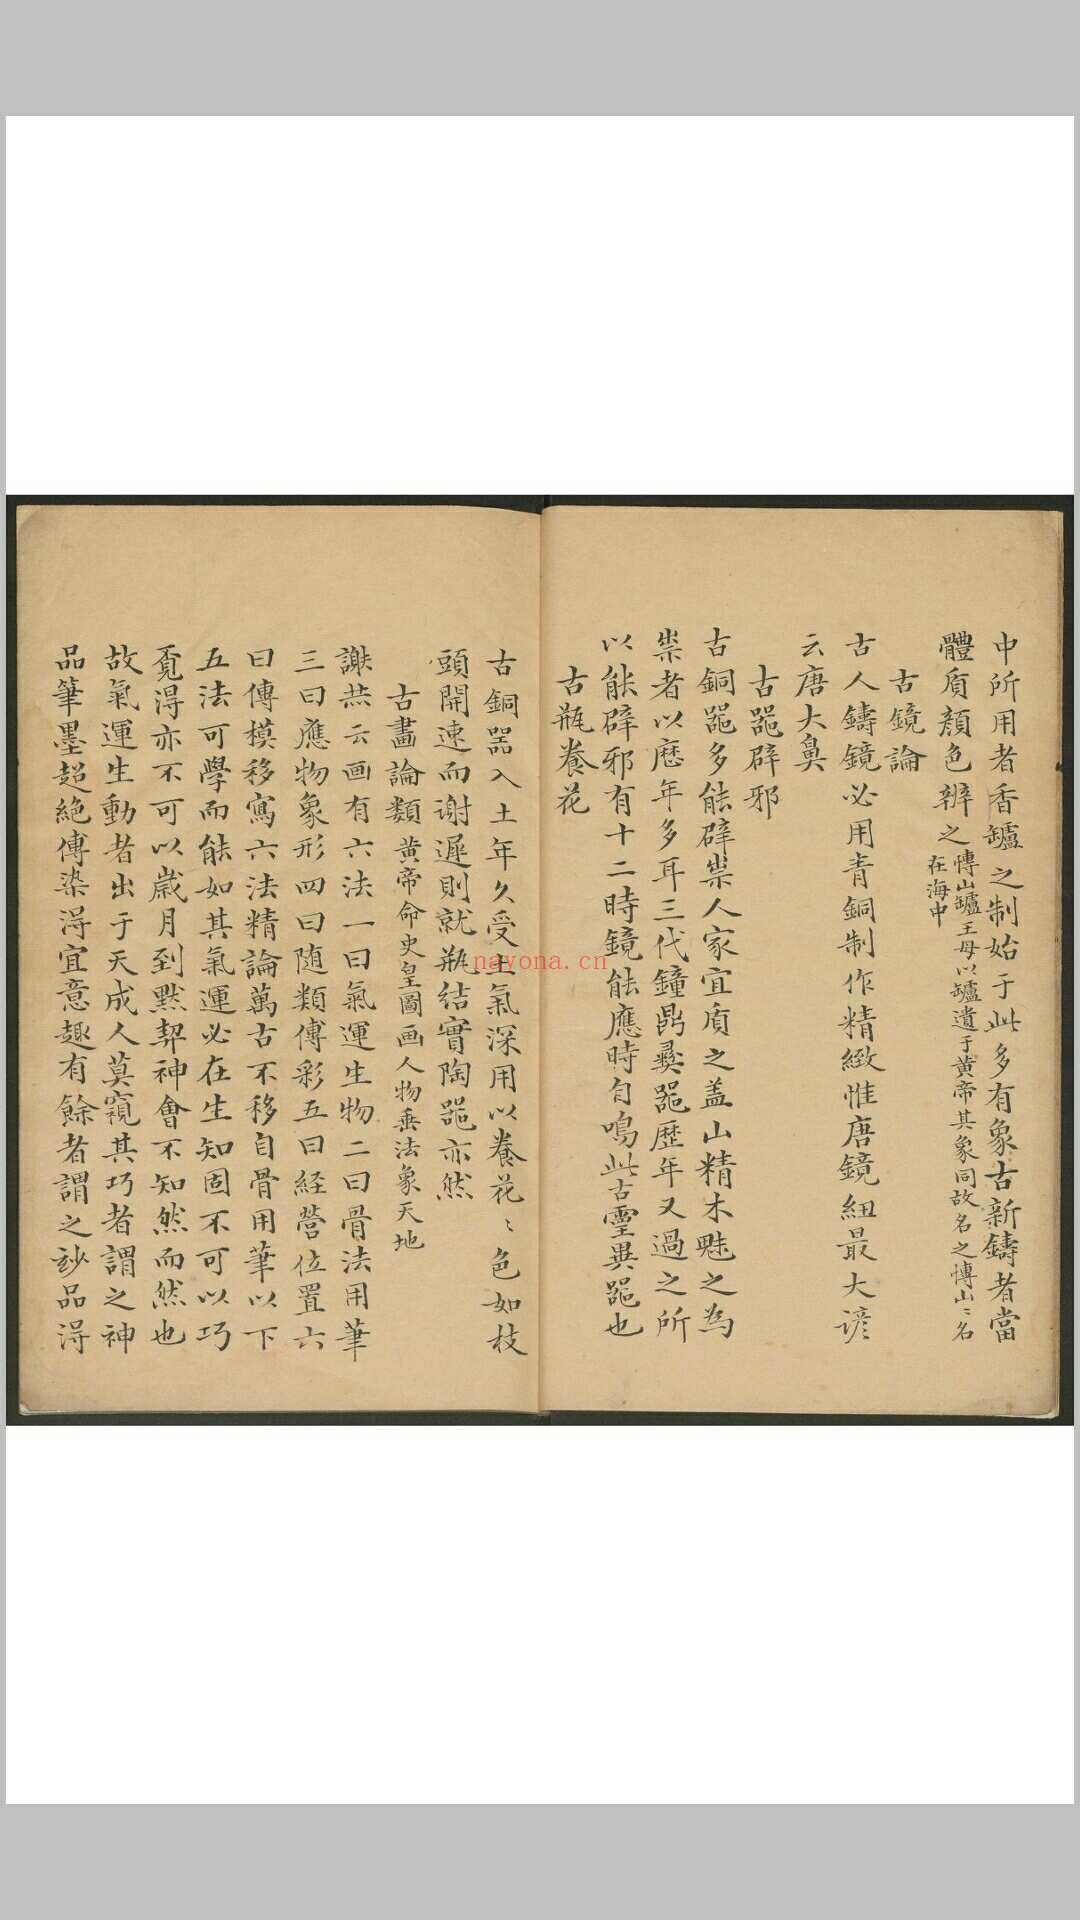 中所用者香罏之制始于此多有象古新鑄者當
體質顏色辨之 慱山罏王母以罏遺于黄帝其象同故名之慱山〻名
在海中
古鏡論
古人鑄鏡必用青銅制作精緻惟唐鏡紐最大諺
云唐大鼻
古噐辟邪
古銅噐多能辟祟人家宜質之盖山精木魅之為
祟者以歴年多耳三代鐘鼎彜噐歴年又過之所
以能辟邪有十二時鏡能應時自鳴此古靈異噐也
古瓶養花
古銅噐入土年久受土氣深用以養花〻色如枝
頭開速而谢遲則就瓶结實陶噐亦然
古畫論類 黄帝命史皇圖画人物垂法象天地
謝恭云画有六法一曰氣運生物二曰骨法用筆
三曰應物象形四曰随類傅彩五曰経營位置六
曰傳模移寫六法精論萬古不移自骨用筆以下
五法可學而能如其氣運必在生知固不可以巧
覔得亦不可以歲月到黙契神會不知然而然也
故氣運生動者出于天成人莫窺其巧者謂之神
品筆墨超絶傅染得宜意趣有餘者謂之玅品得
nayona.cn